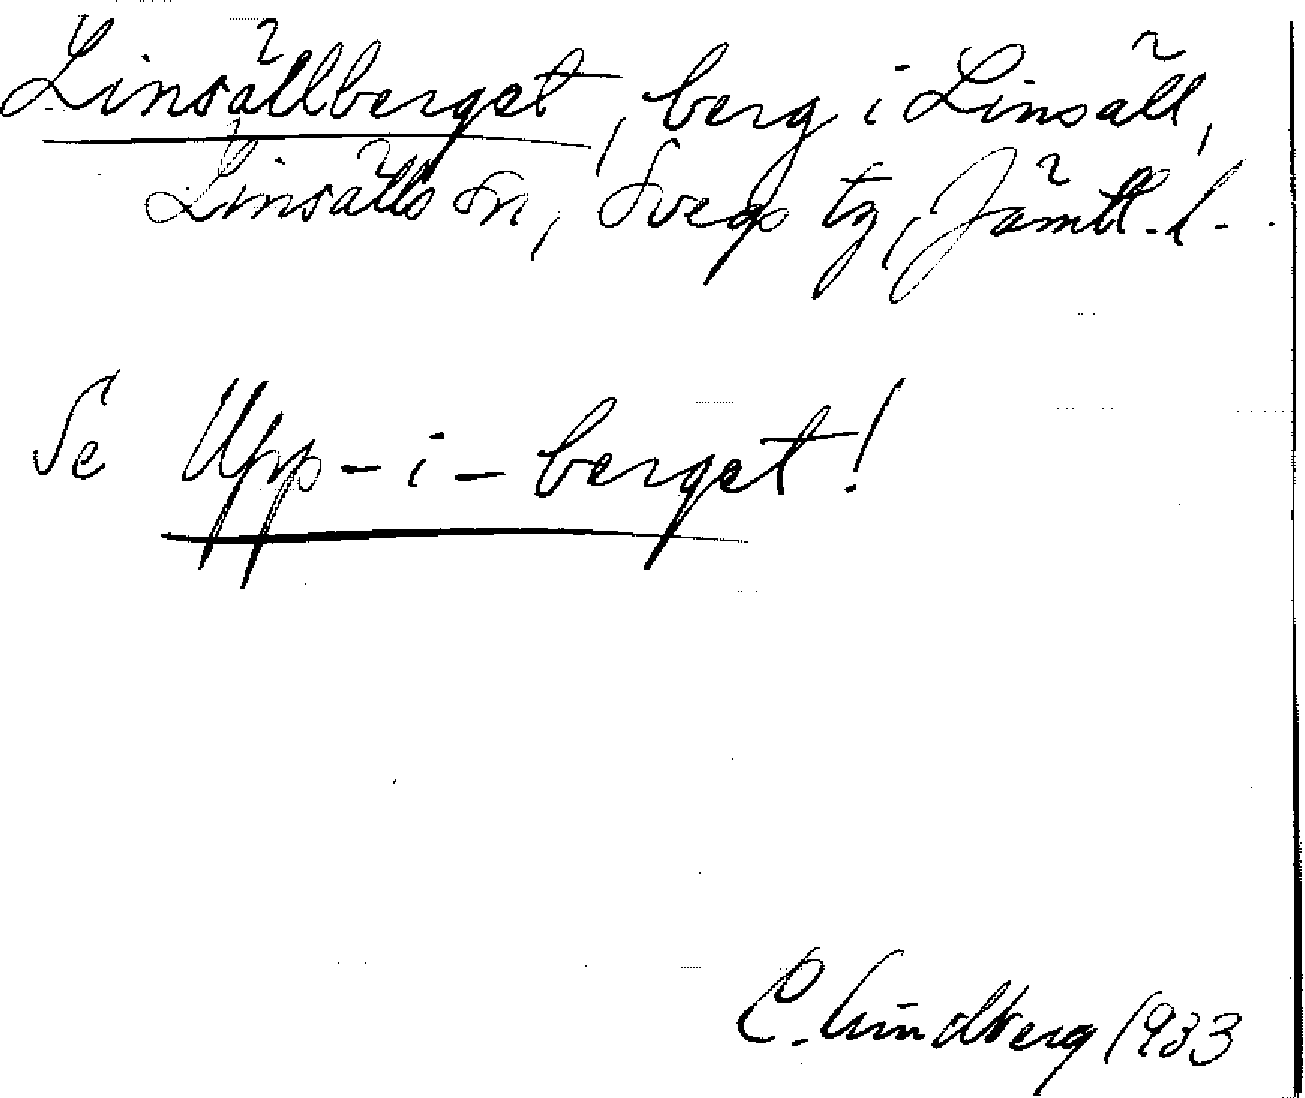 Linsällberget, berg i Linsäll,
Linsälls sn, Svegs tg, Jämtl. l.
Se Upp-i-berget!
C. Lundberg 1933